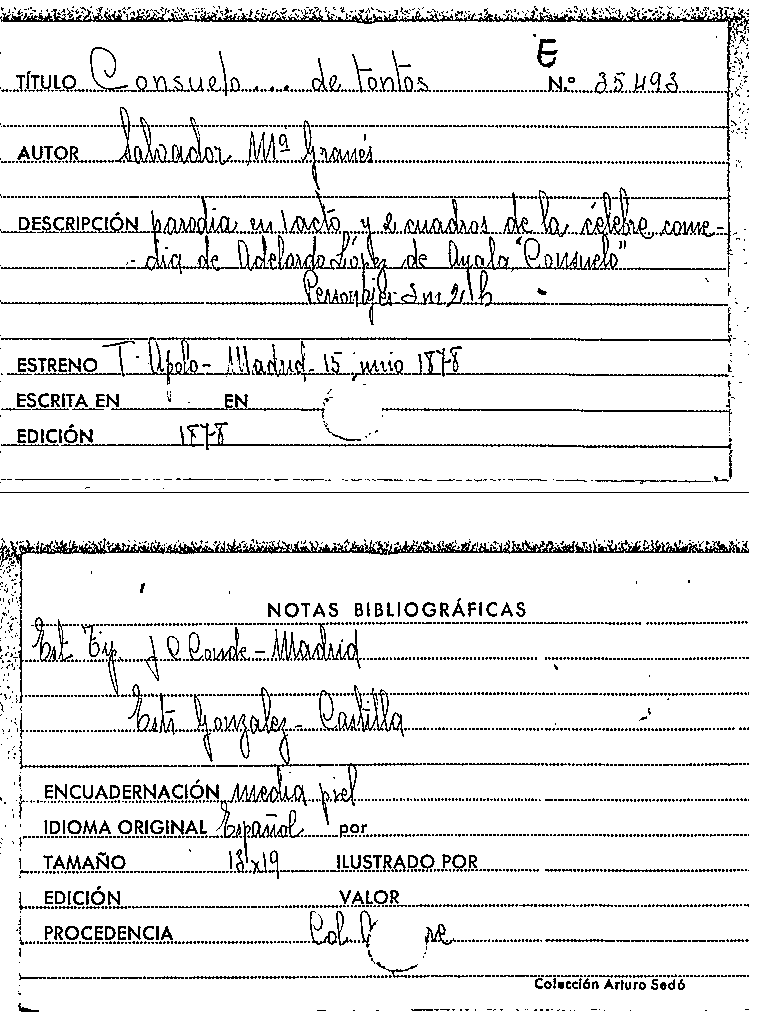 E
TÍTULO Consuelo .... de tontos N.º 35493
AUTOR Salvador Mª Granés
DESCRIPCIÓN parodia en 1 acto y 2 cuadros de la célebre come-
- dia de Adelardo López de Ayala "Consuelo"
Personajes 3 m 2 h
ESTRENO T. Apolo - Madrid - 15 junio 1878
ESCRITA EN EN
EDICIÓN 1878
NOTAS BIBLIOGRÁFICAS
Est Tip J C Conde - Madrid
Gonzalez - Castilla
ENCUADERNACIÓN media piel
IDIOMA ORIGINAL Español por
TAMAÑO 13x19 ILUSTRADO POR
EDICIÓN VALOR
PROCEDENCIA Col.
Colección Arturo Sedó